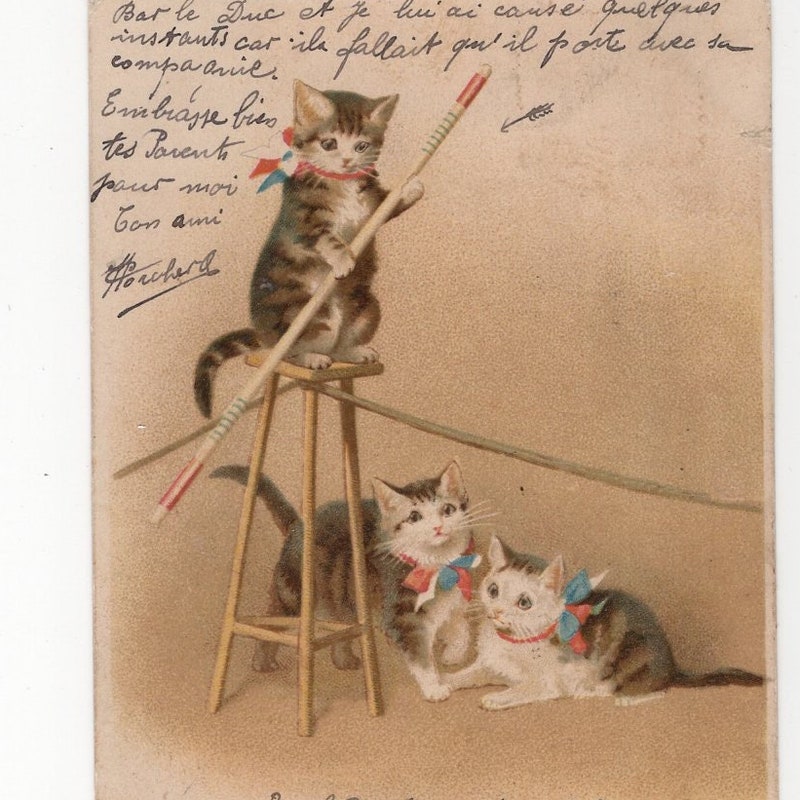 Bar le Duc et je lui ai causé quelques
instants car ils fallait qu'il porte avec sa
compagnie.
Embrasse bien
tes Parents
pour moi
Ton ami